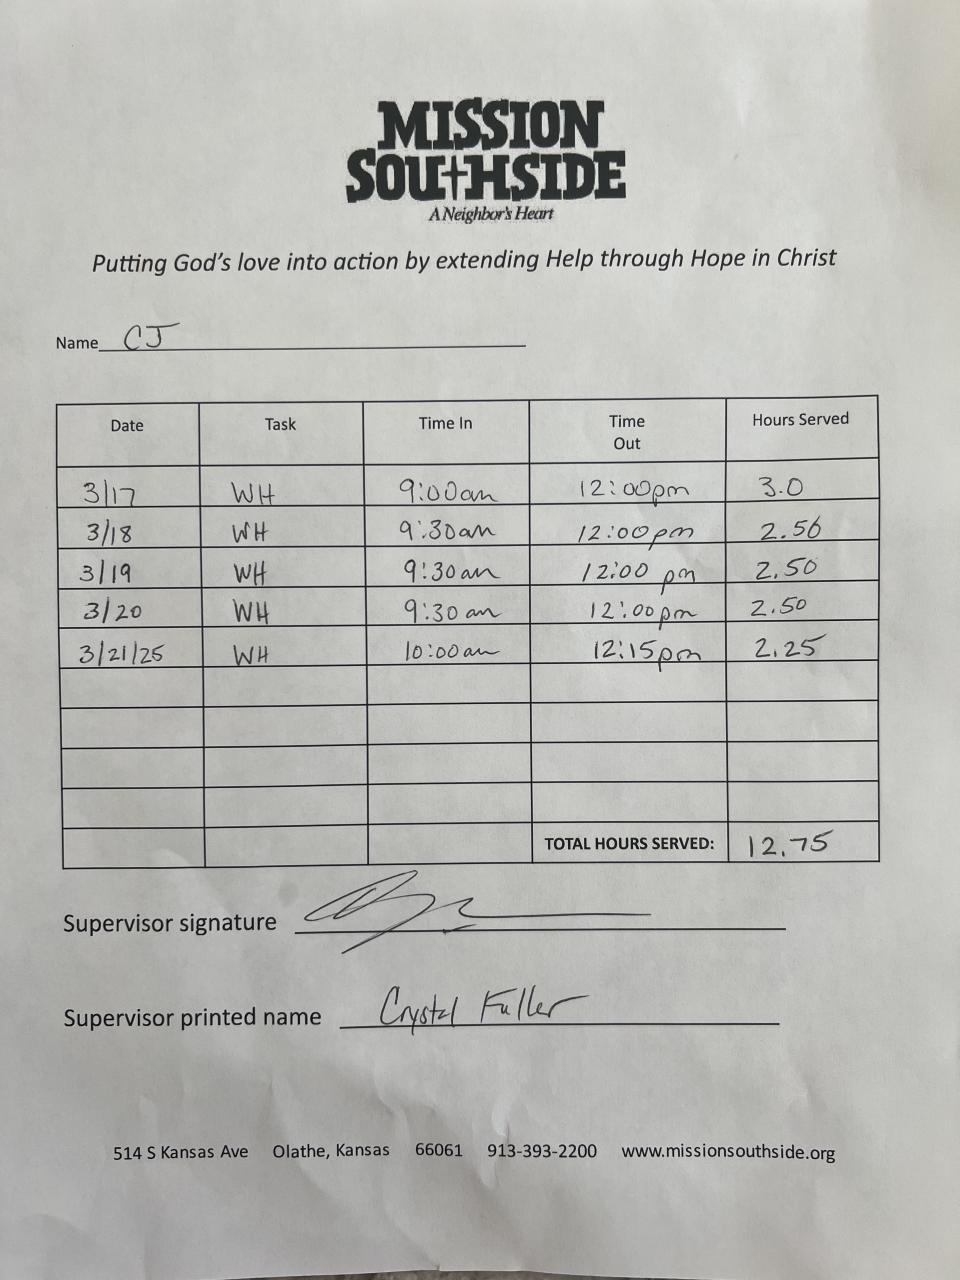 MISSION
SOUTHSIDE
A Neighbor's Heart
Putting God's love into action by extending Help through Hope in Christ
Name CJ
Date Task Time In Time Out Hours Served
3/17 WH 9:00am 12:00pm 3.0
3/18 WH 9:30am 12:00pm 2.50
3/19 WH 9:30am 12:00 pm 2.50
3/20 WH 9:30 am 12:00pm 2.50
3/21/25 WH 10:00am 12:15pm 2.25
TOTAL HOURS SERVED: 12.75
Supervisor signature
Supervisor printed name Crystal Fuller
514 S Kansas Ave Olathe, Kansas 66061 913-393-2200 www.missionsouthside.org